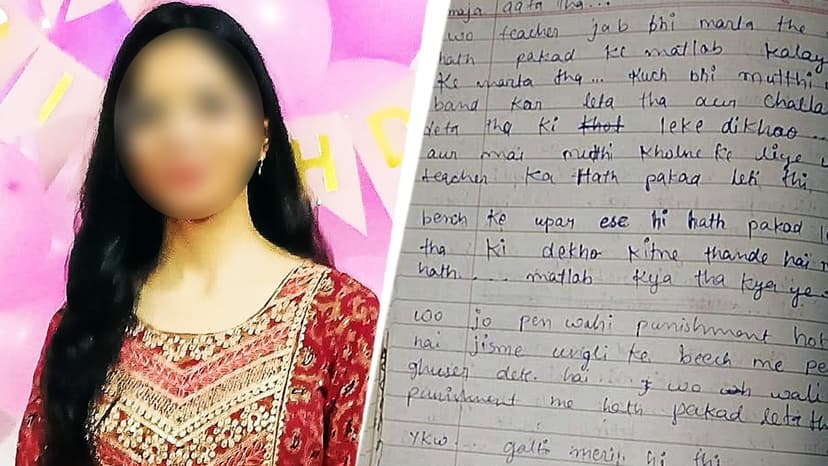 H
D
maja aata tha...
woo teacher jab bhi marta the
hath pakad ke matlab kalay
ke marta tha... kuch bhi mutthi
band kar leta tha aur challa
deta tha ki khot leke dikhao ...
aur mai mutthi kholne ke liye
teacher ka hath pakad leti thi
bench ke upar ese hi hath pakad
tha ki dekho kitne thande hai
hath .... matlab kya tha kya ye
woo jo pen wahi punishment hot
hai jisme ungli ke beech me pe
ghuser dete hai... wo wali
punishment me hath pakad leta th
YKW... galti meri hi thi